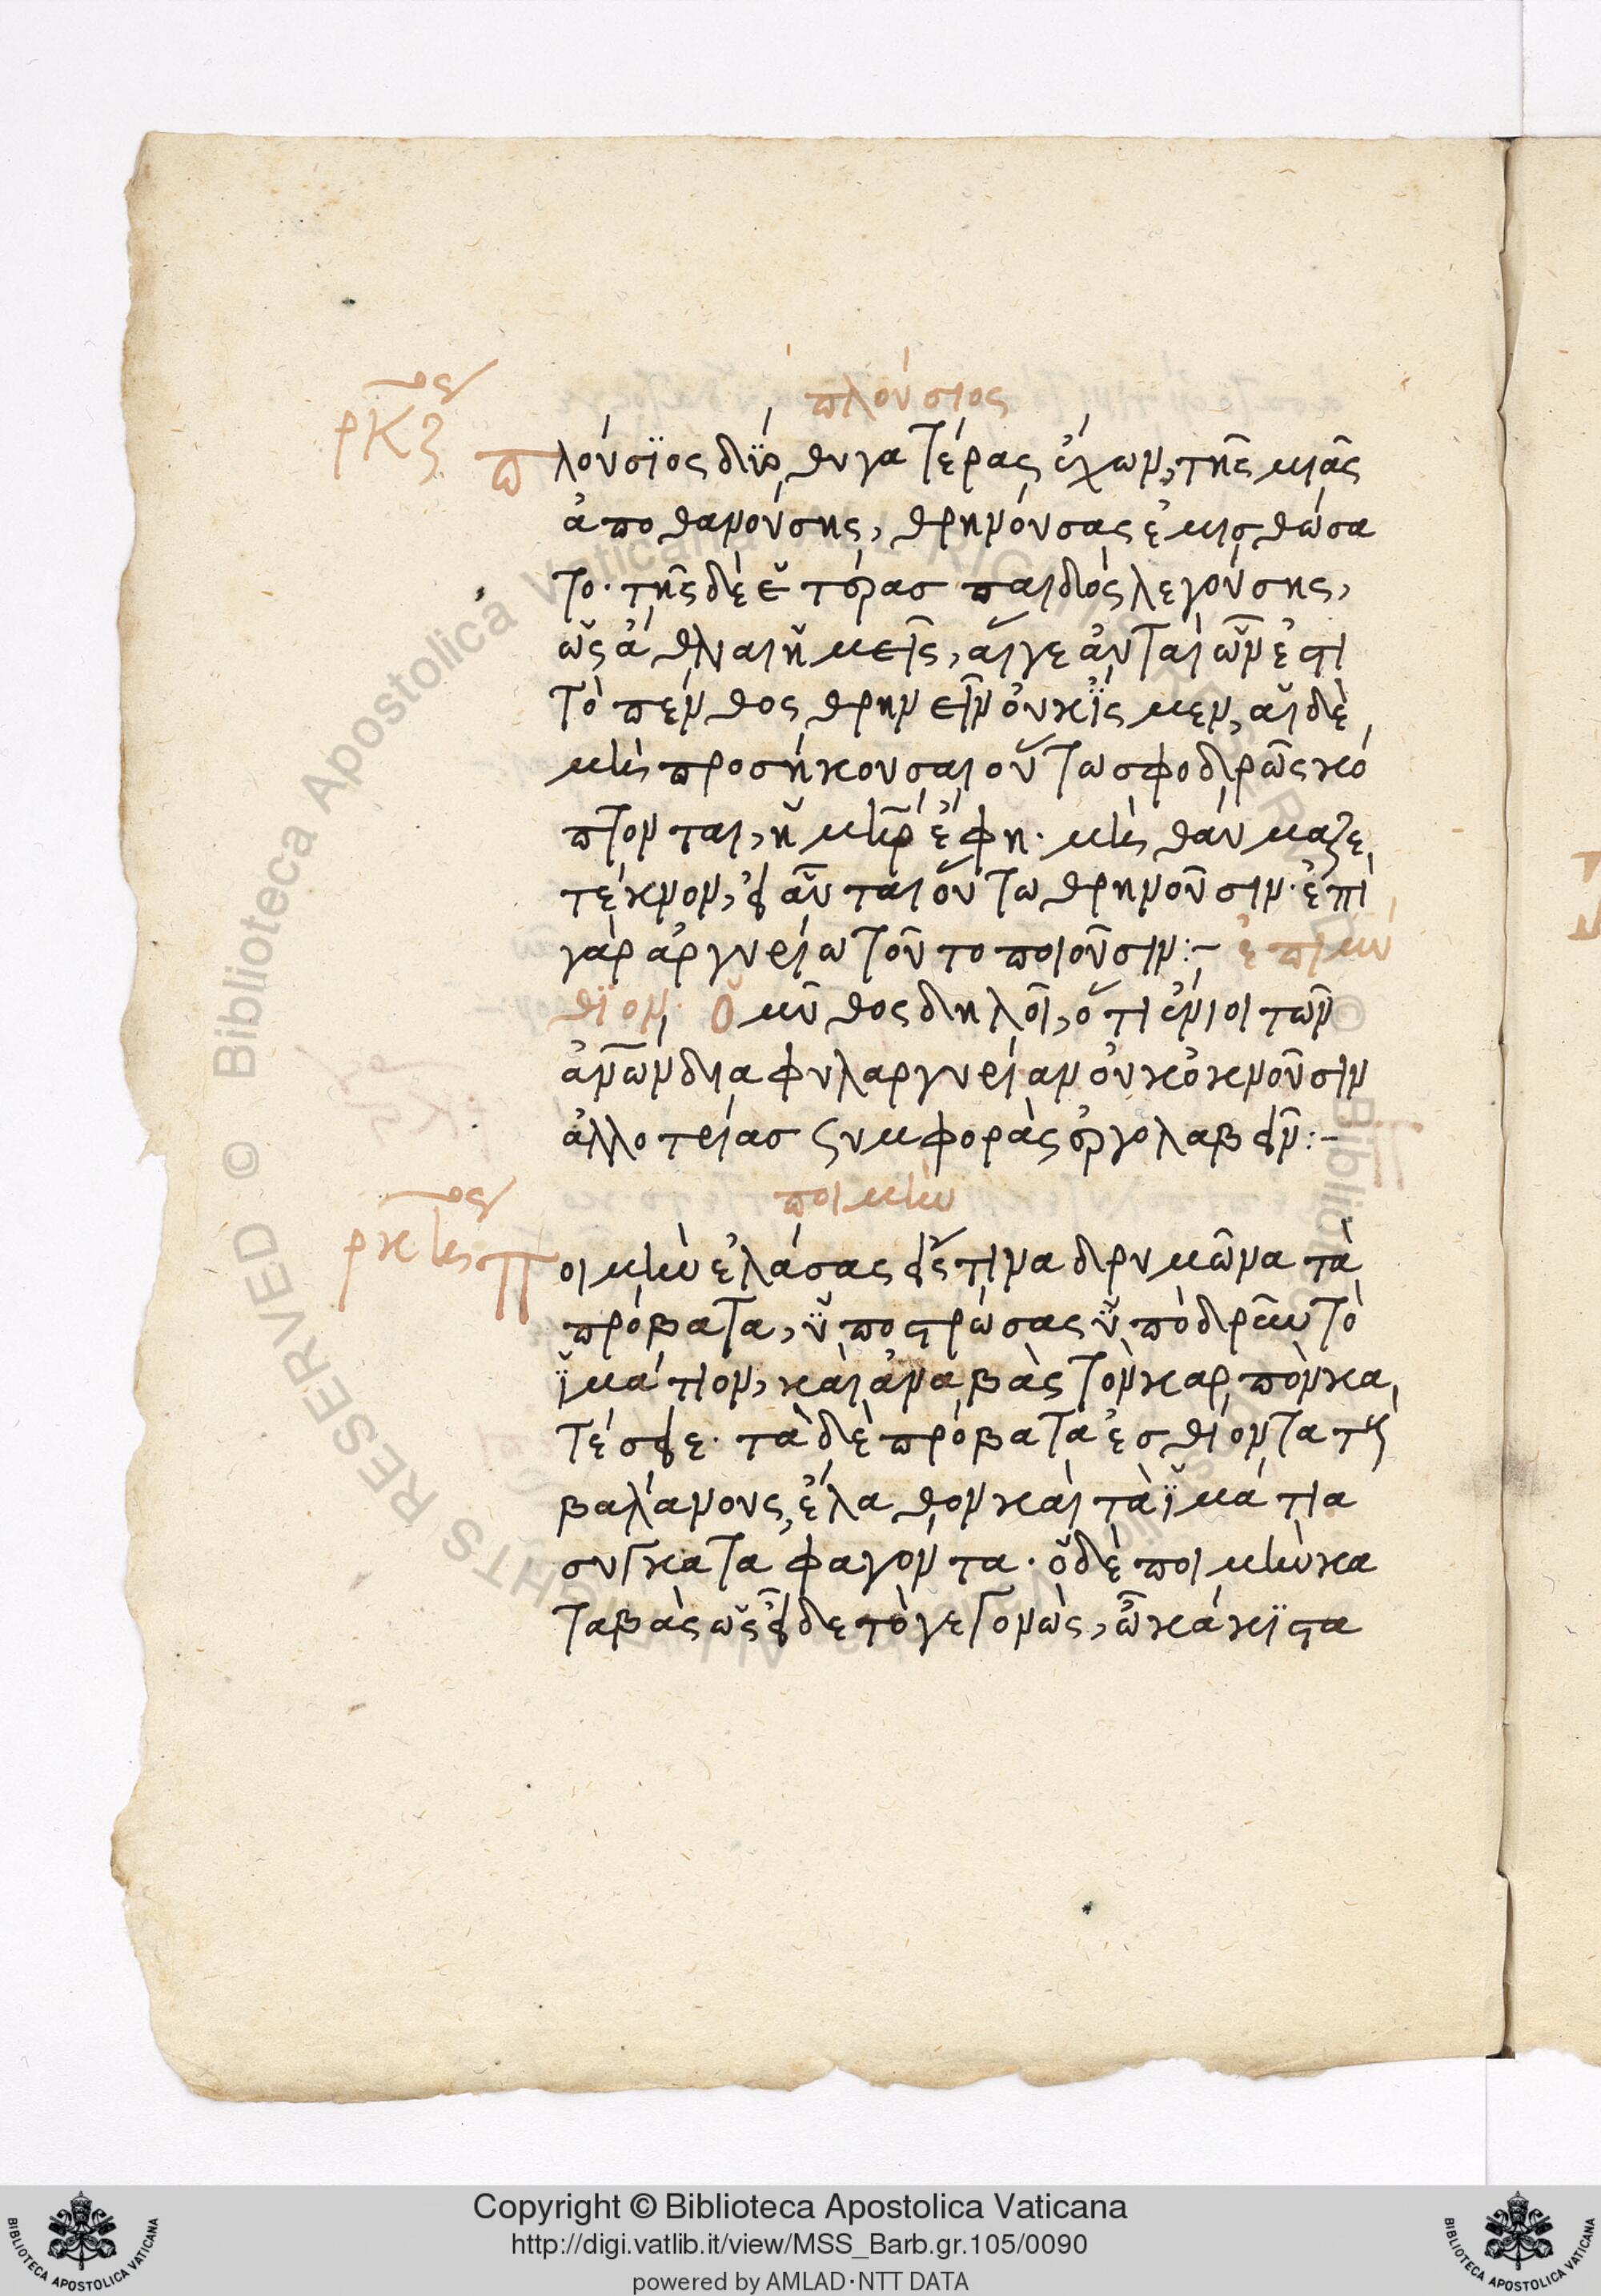 πλούσιος
ρκζος
πλούσϊος δύο θυγατέρας ἔχων, τῆς μιᾶς
ἀποθανούσης, θρηνούσας ἐμισθώσα
το. τῆς δὲ ἑτέρας παιδὸς λεγούσης,
ὡς ἄθλιαι ἡμεῖς, αἵγε αὐταὶ ὧν ἐστὶ
τὸ πένθος θρηνεῖν οὐκ ἴσμεν, αἱ δὲ
μὴ προσήκουσαι οὕτω σφοδρῶς κό
πτονται, ἡ μήτηρ ἔφη. μὴ θαύμαζε
τέκνον, εἰ αὗται οὕτω θρηνοῦσιν. ἐπὶ
γὰρ ἀργυρίω τοῦτο ποιοῦσιν:- ἐπιμύ
θϊον. Ὁ μῦθος δηλοῖ, ὅτι ἔνιοι τῶν
ἀνῶν δια φυλαργυρίαν οὐκ ὀκνοῦσιν
ἀλλοτρίας συμφορὰς ἐργολαβεῖν:-
ποιμὴν
ρκηος
Ποιμὴν ἐλάσας εἴς τινα δρυμῶνα τὰ
πρόβατα, ὑποστρώσας ὑπὸ δρῦν τὸ
ἱμάτιον, καὶ ἀναβὰς τὸν καρπὸν κα
τέσειε. τὰ δὲ πρόβατα ἐσθίοντα τὰς
βαλάνους, ἔλαθον καὶ τὰ ἱμάτια
συγκαταφαγόντα. ὁ δὲ ποιμὴν κα
ταβὰς ὡς εἶδε τὸ γεγονὼς, ὦ κάκϊστα
Copyright © Biblioteca Apostolica Vaticana
http://digi.vatlib.it/view/MSS_Barb.gr.105/0090
powered by AMLAD·NTT DATA